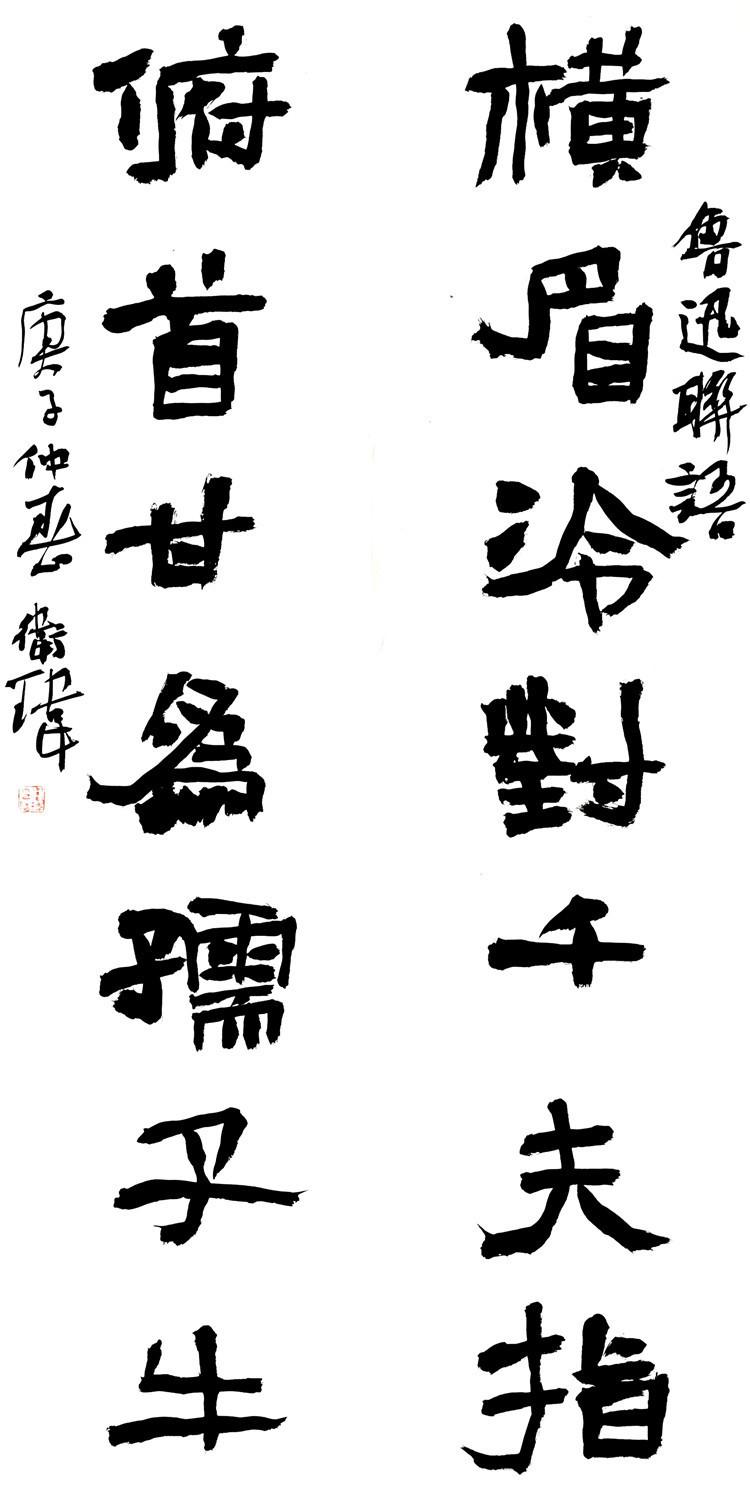 魯迅聯語
橫眉泠對千夫指
俯首甘為孺子牛
庚子仲春 衛瑋